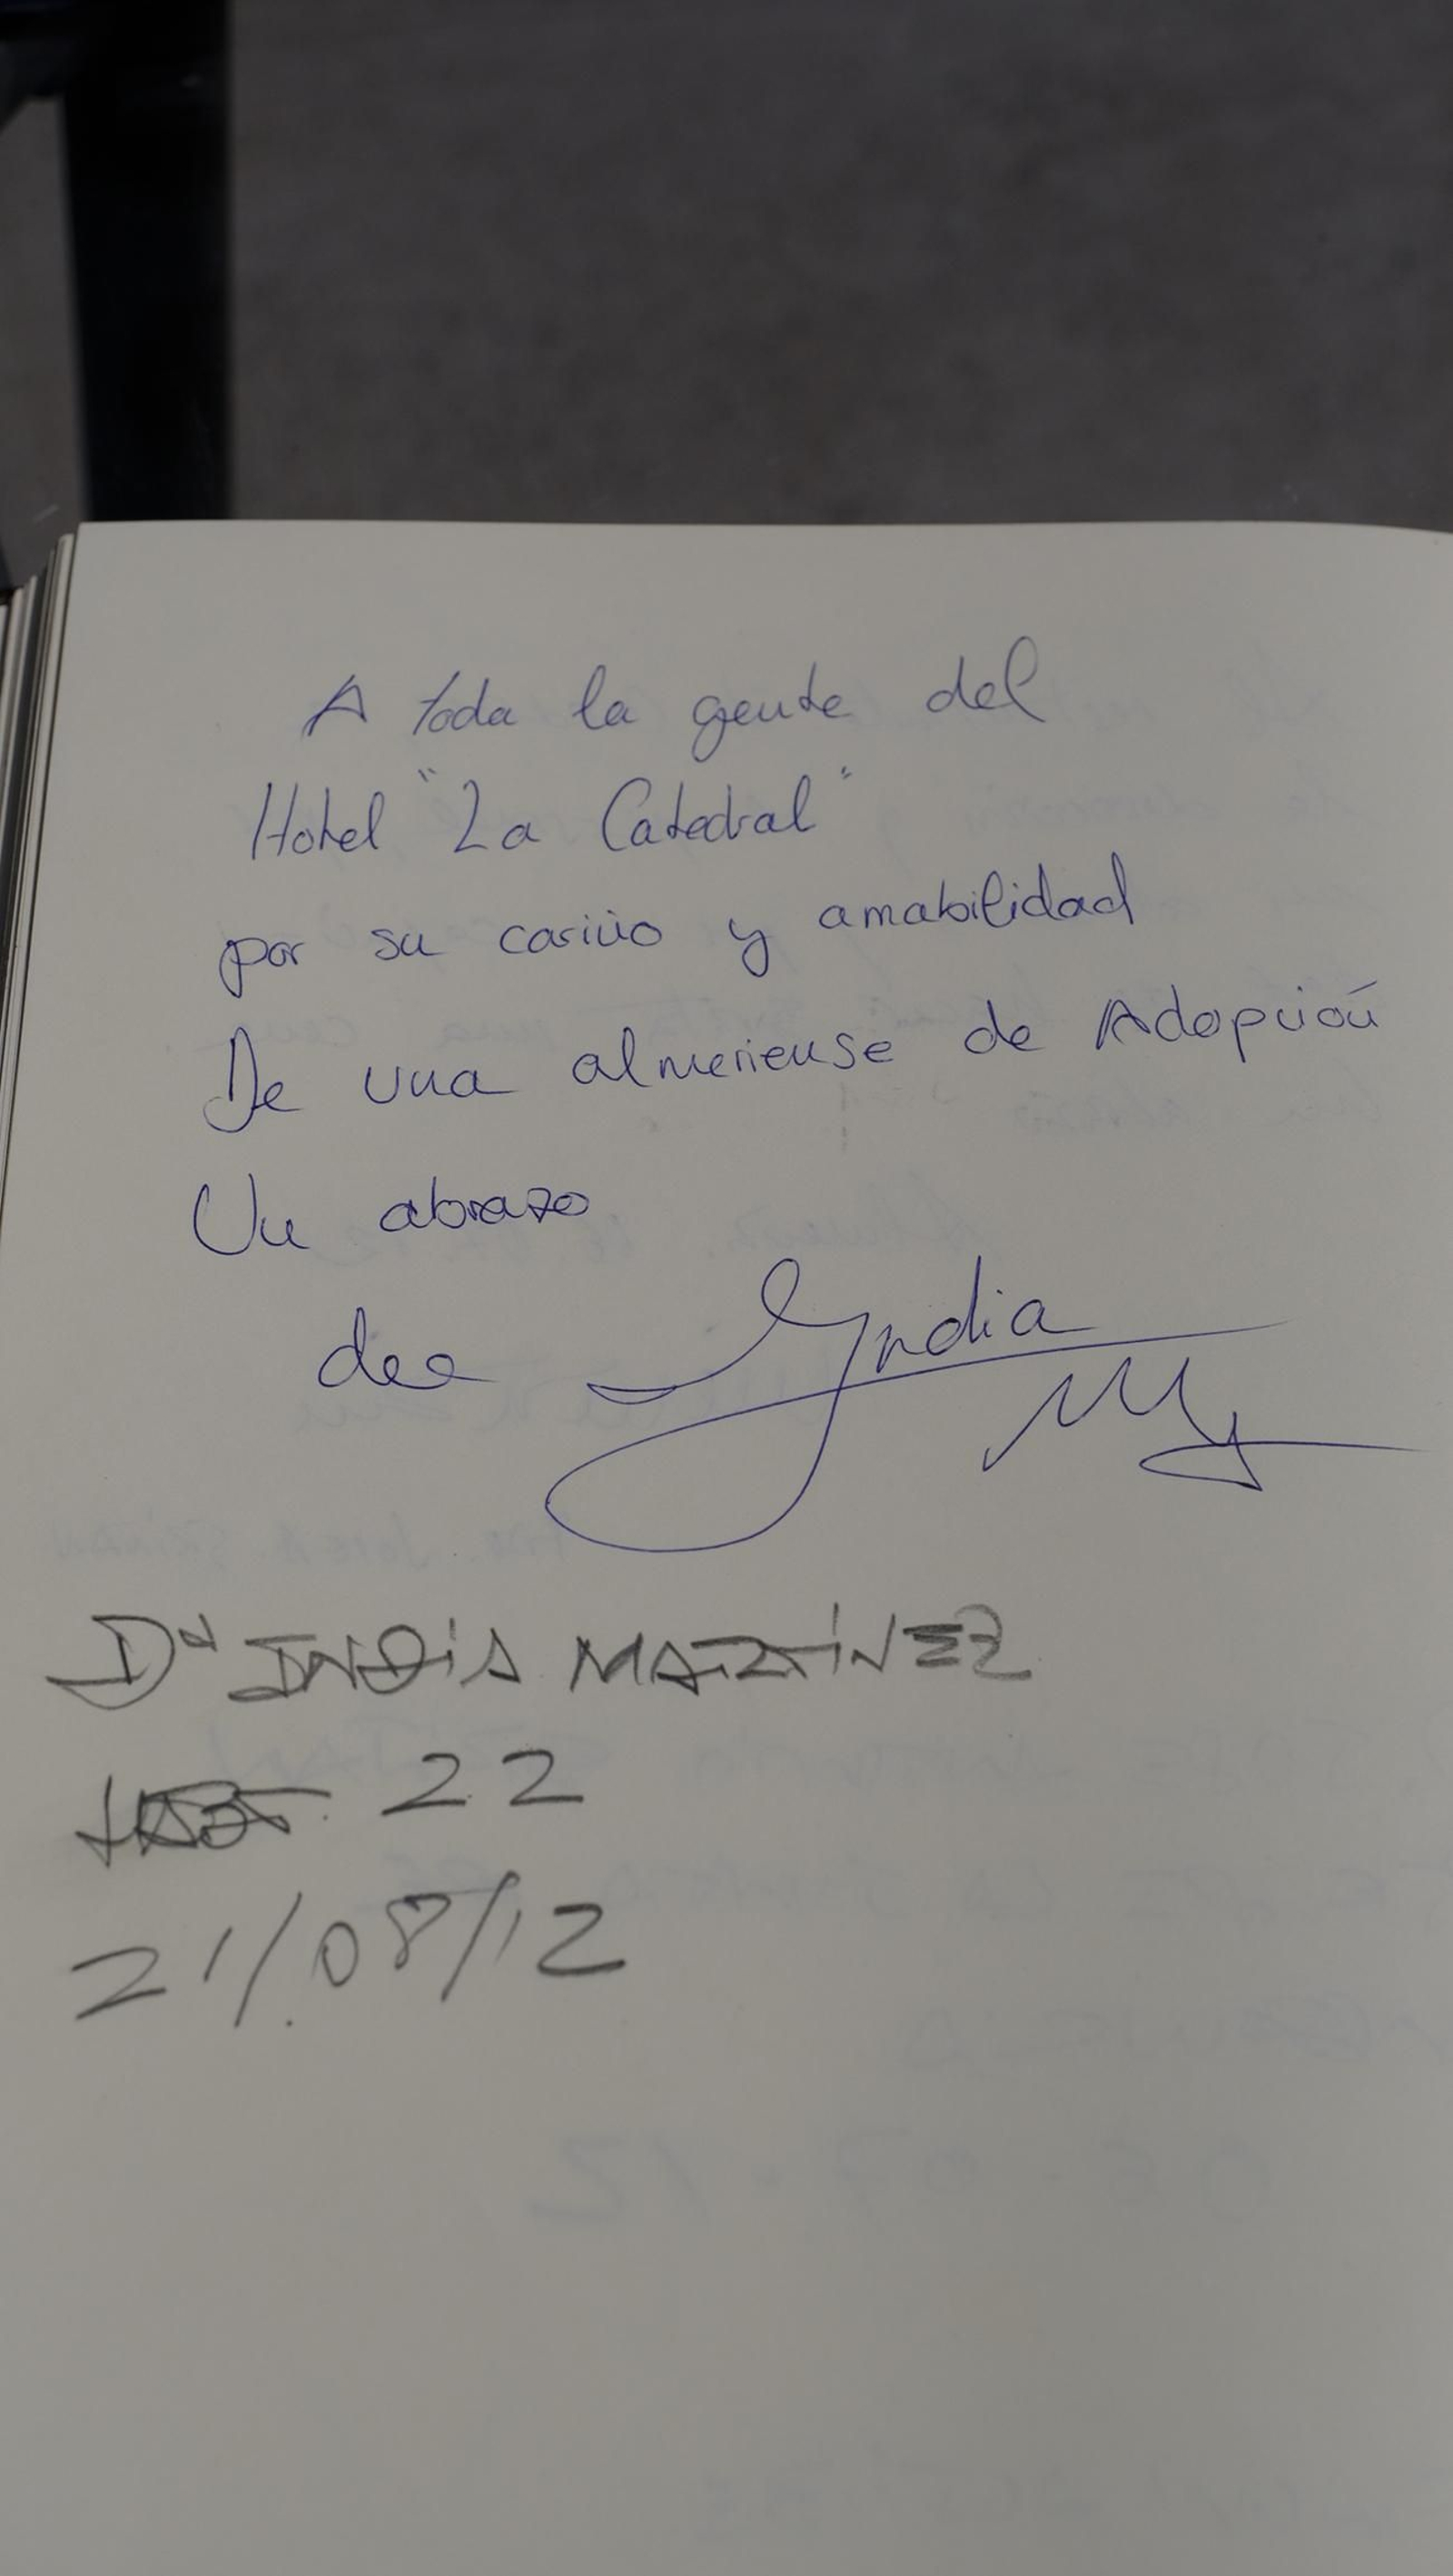 A toda la gente del
Hotel "La Catedral"
por su cariño y amabilidad
De una almeriense de Adopción
Un abrazo
de India
Dª INDIA MARTÍNEZ
HAB 22
21/08/12